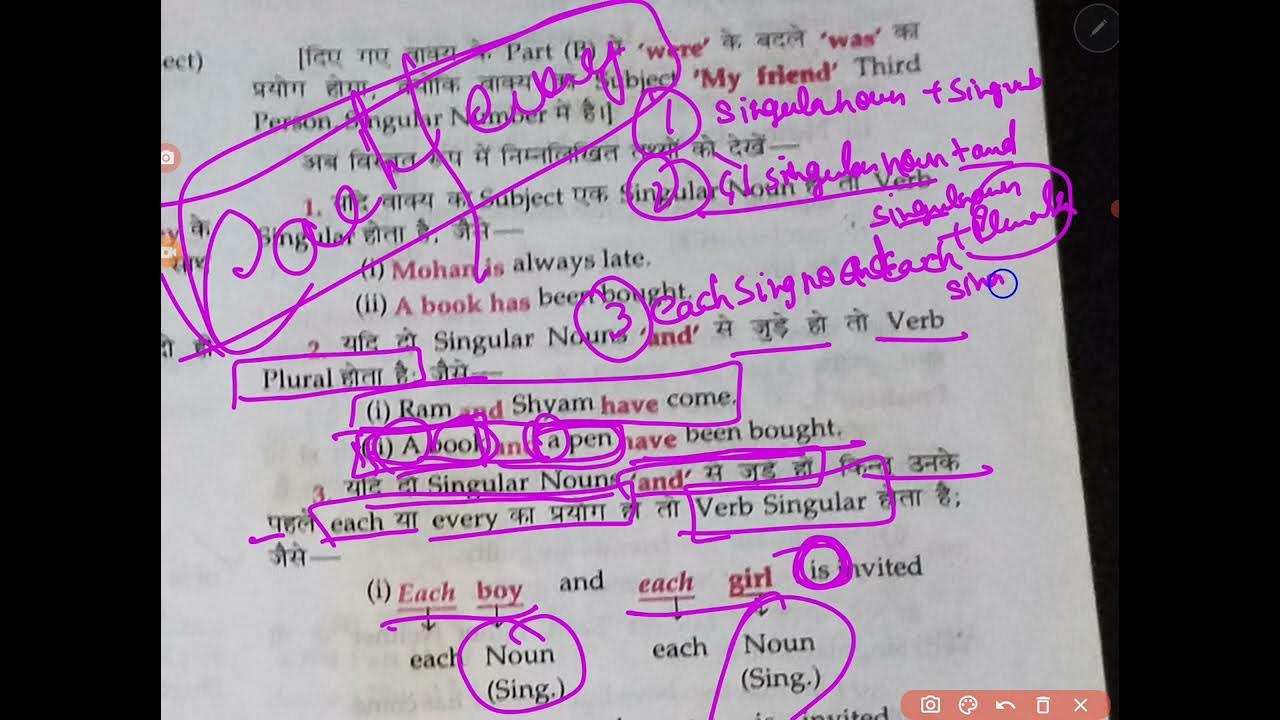 ect) [दिए गए वाक्य के Part (B) में 'were' के बदले 'was' का
प्रयोग होगा, क्योंकि वाक्य का Subject 'My friend' Third
Person Singular Number में है।]
अब विस्तृत रूप में निम्नलिखित तथ्यों को देखें—
1. यदि वाक्य का Subject एक Singular Noun हो तो Verb
Singular होता है, जैसे—
(i) Mohan is always late.
(ii) A book has been bought.
2. यदि दो Singular Nouns 'and' से जुड़े हो तो Verb
Plural होता है; जैसे—
(i) Ram and Shyam have come.
(i) A book and a pen have been bought.
3. यदि दो Singular Nouns 'and' से जुड़े हों किन्तु उनके
पहले each या every का प्रयोग हो तो Verb Singular होता है;
जैसे—
(i) Each boy and each girl is invited
each Noun each Noun
(Sing.) (Sing.)
is invited
every
1 singular noun + Singub
2 singular noun + and
singular noun
+ Plural
3 each Sing no and each
sin